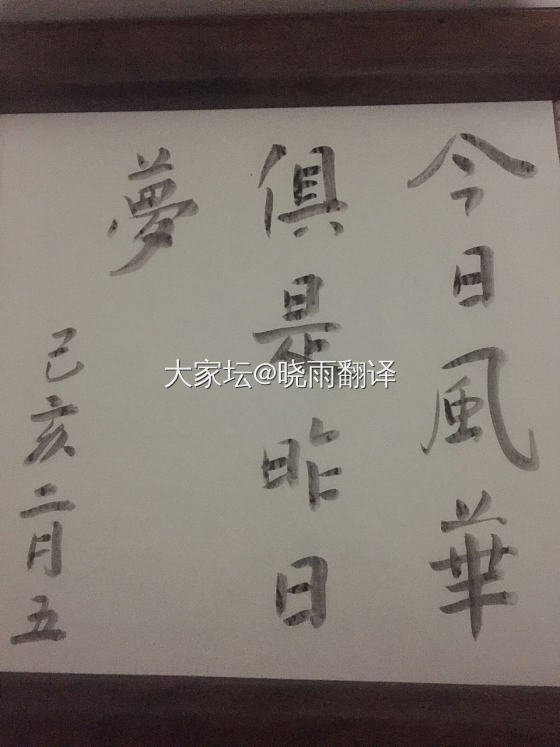 今日風華
俱是昨日
夢
己亥二月五
大家坛@晓雨翻译